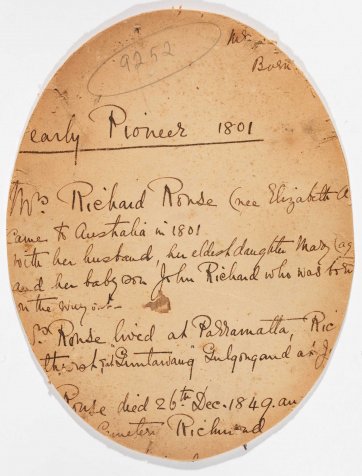 9252
Mr
Born
early Pioneer 1801
Mrs Richard Rouse (nee Elizabeth A
came to Australia in 1801
with her husband, her eldest daughter Mary (ag
and her baby son John Richard who was born
on the way out
Mrs Rouse lived at Parramatta, Ric
"Guntawang" Gulgong and at
Rouse died 26th Dec. 1849. an
Cemetery Richmond